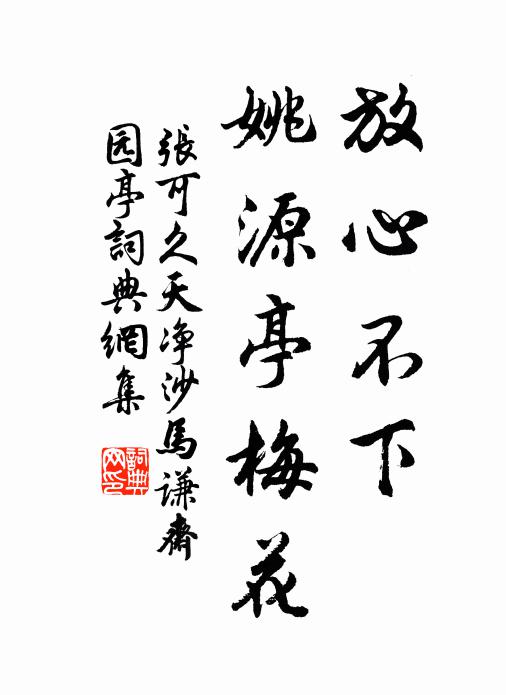 放心不下
姚源亭梅花
張可久天净沙馬谦齋
园亭詞典網集
詞典网印